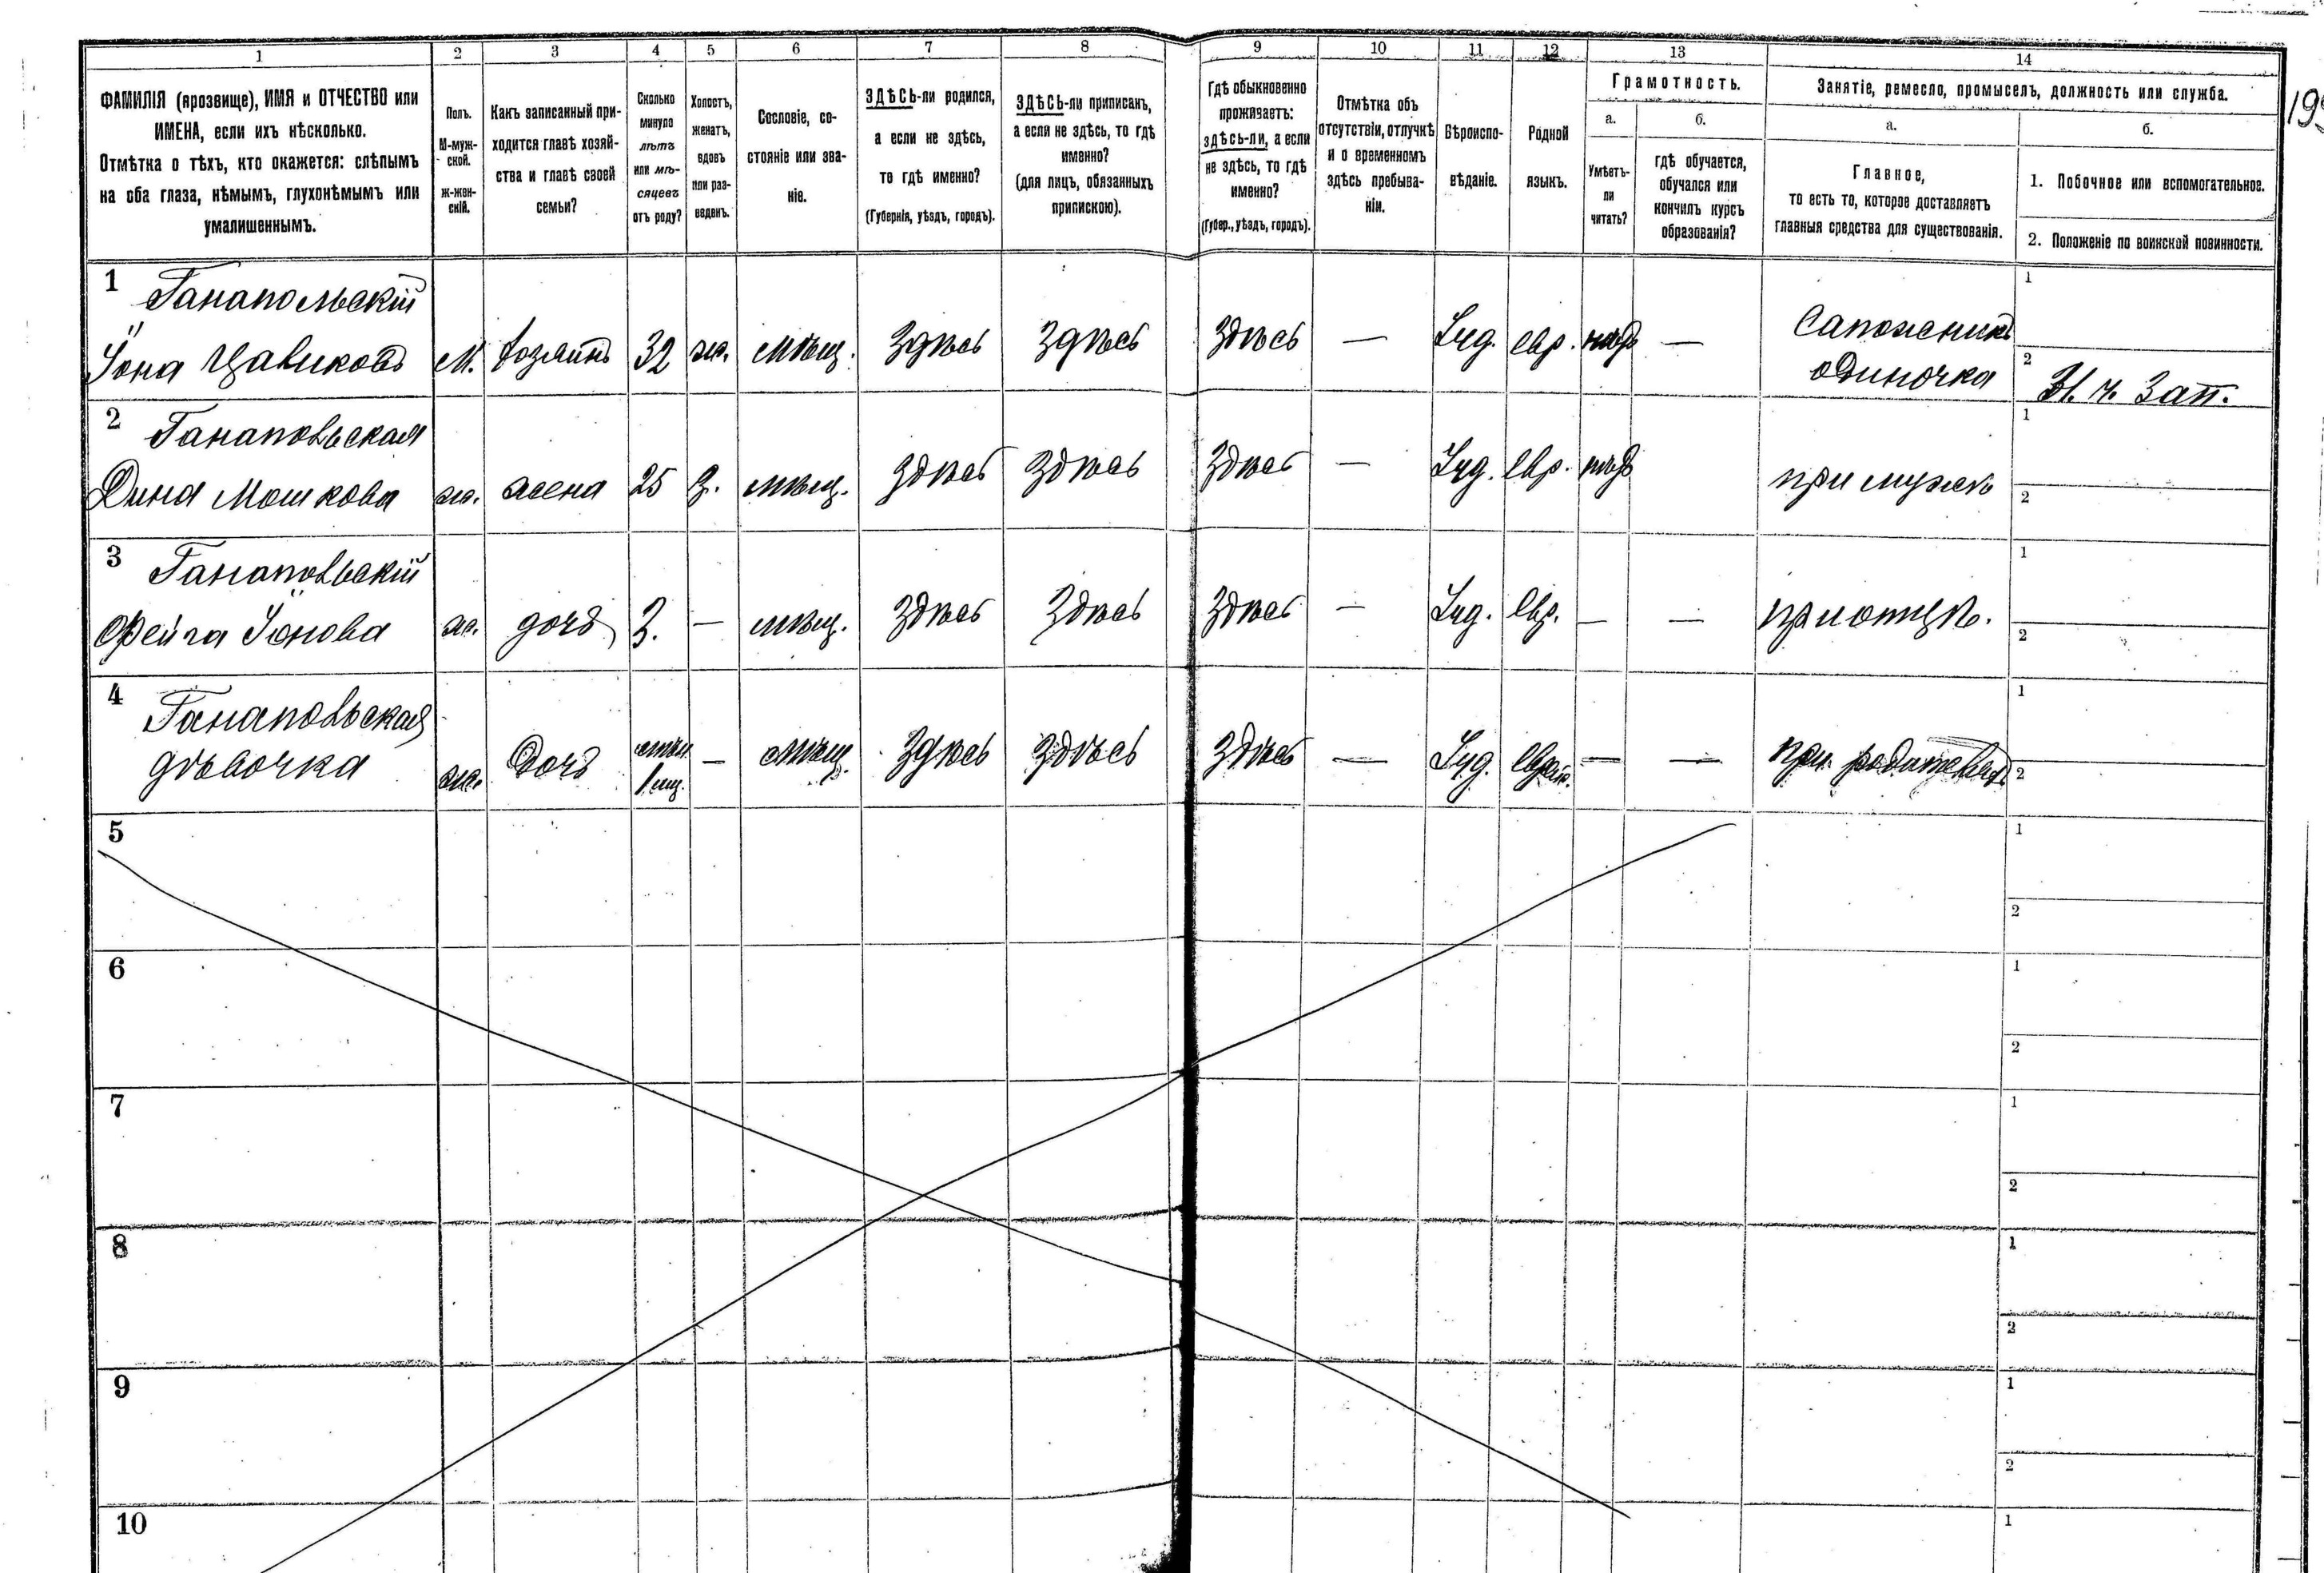 1 2 3 4 5 6 7 8 9 10 11 12 13 14
ФАМИЛІЯ (прозвище), ИМЯ и ОТЧЕСТВО или
ИМЕНА, если ихъ нѣсколько.
Отмѣтка о тѣхъ, кто окажется: слѣпымъ
на оба глаза, нѣмымъ, глухонѣмымъ или
умалишеннымъ.
Полъ.
М-муж-
ской.
ж-жен-
скій.
Какъ записанный при-
ходится главѣ хозяй-
ства и главѣ своей
семьи?
Сколько
минуло
лѣтъ
или мѣ-
сяцевъ
отъ роду?
Холостъ,
женатъ,
вдовъ
или раз-
веденъ.
Сословіе, со-
стояніе или зва-
ніе.
ЗДѢСЬ-ли родился,
а если не здѣсь,
то гдѣ именно?
(Губернія, уѣздъ, городъ).
ЗДѢСЬ-ли приписанъ,
а если не здѣсь, то гдѣ
именно?
(для лицъ, обязанныхъ
припискою).
Гдѣ обыкновенно
проживаетъ:
здѣсь-ли, а если
не здѣсь, то гдѣ
именно?
(Губер., уѣздъ, городъ).
Отмѣтка объ
отсутствіи, отлучкѣ
и о временномъ
здѣсь пребыва-
ніи.
Вѣроиспо-
вѣданіе.
Родной
языкъ.
Грамотность.
а.
Умѣетъ-
ли
читать?
б.
гдѣ обучается,
обучался или
кончилъ курсъ
образованія?
Занятіе, ремесло, промыселъ, должность или служба.
а.
Главное,
то есть то, которое доставляетъ
главныя средства для существованія.
б.
1. Побочное или вспомогательное.
2. Положеніе по воинской повинности.
1 Ганапольскій
Іона Цавиковъ М. хозяинъ 32 ж. мѣщ. Здѣсь Здѣсь Здѣсь — Іуд. евр. — Сапожникъ
одиночка
1
2
2 Ганапольская
Дина Мошкова ж. жена 25 З. мѣщ. Здѣсь Здѣсь Здѣсь — Іуд. евр. при мужѣ
1
2
3 Ганапольскій
Фейга Іонова ж. дочь 3. — мѣщ. Здѣсь Здѣсь Здѣсь — Іуд. евр. — — при отцѣ.
1
2
4 Ганапольская
дѣвочка ж. Дочь — мѣщ. Здѣсь Здѣсь Здѣсь — Іуд. — — при родителяхъ
1
2
5
1
2
6
1
2
7
1
2
8
1
2
9
1
2
10
1